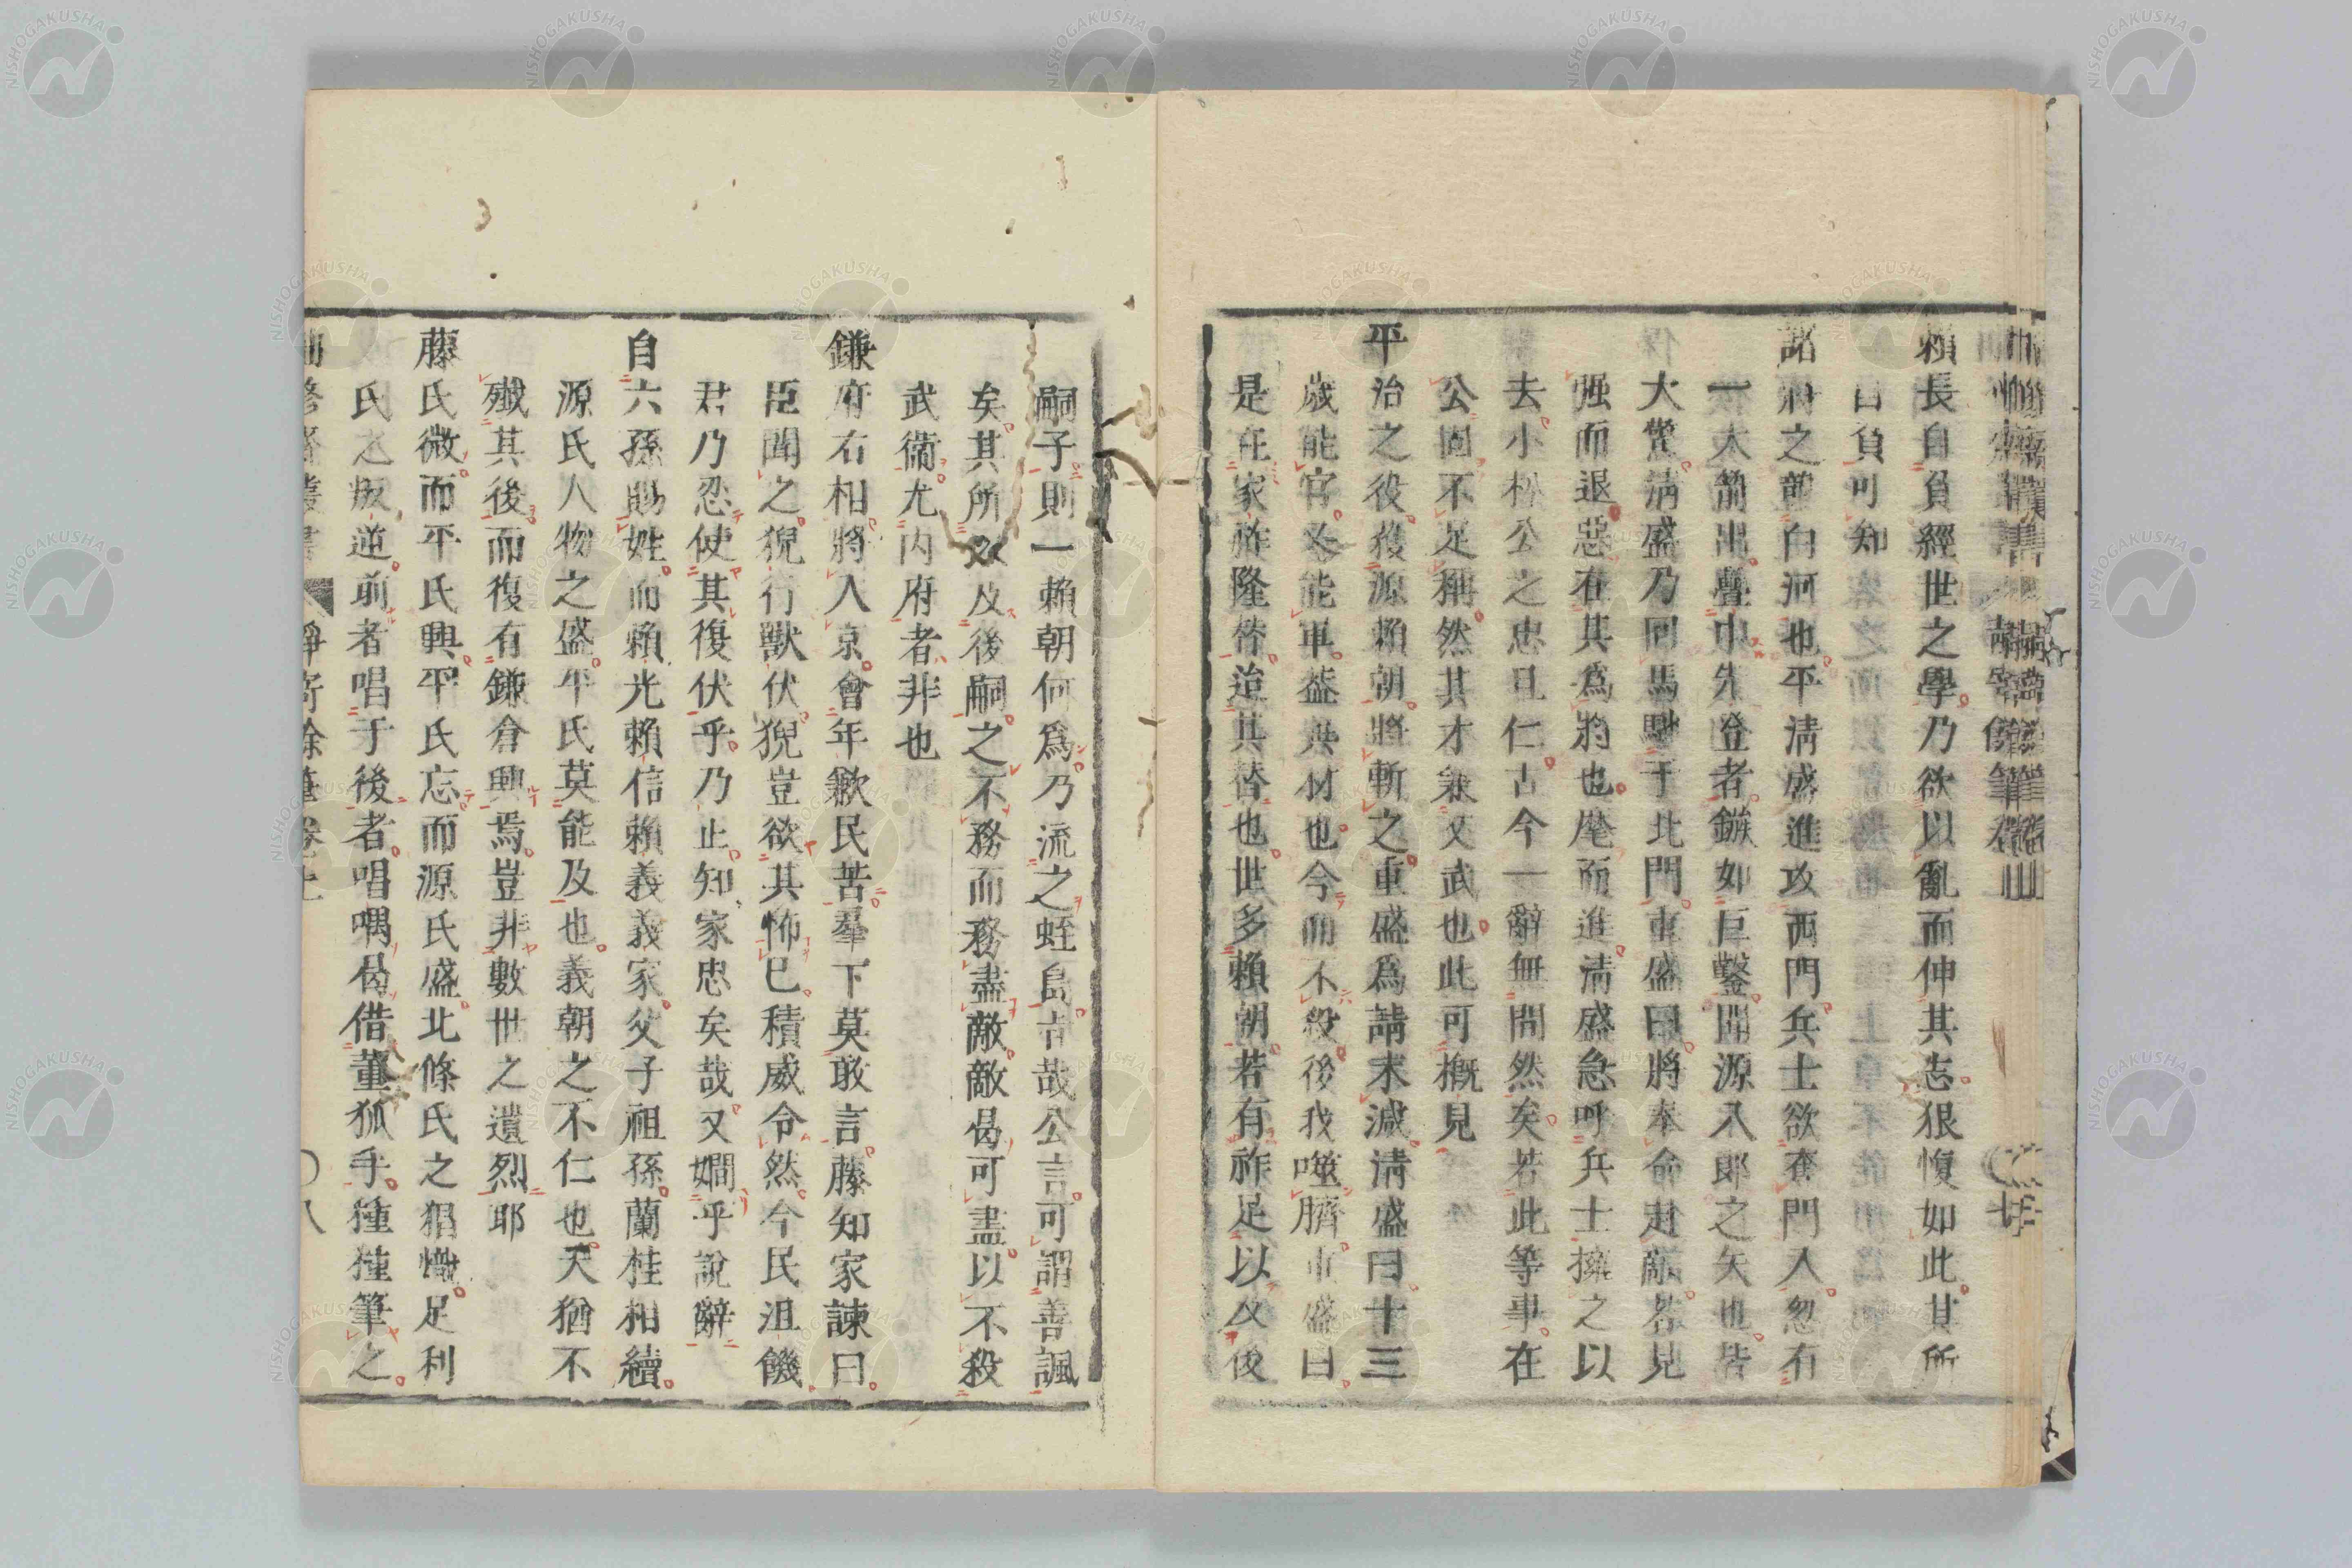 賴長自負經世之學乃欲以亂而伸其志狠愎如此其所
自負可知
詔將之部白河也平淸盛進攻西門兵士欲奪門入忽有
一大箭出疊中先登者鏃如巨鑿聞源八郎之矢也皆
大驚淸盛乃回馬馳于北門重盛曰將奉命赴敵若見
强而退惡在其爲將也麾而進淸盛急呼兵士擁之以
去小松公之忠且仁古今一辭無間然矣若此等事在
公固不足稱然其才兼文武也此可槪見
平治之役獲源賴朝將斬之重盛爲請末減淸盛曰十三
歲能官又能軍益典材也今而不殺後我噬臍重盛曰
是在家祚隆替造其替也世多賴朝若有祚足以及後
嗣子則一賴朝何爲乃流之蛭島古哉公言可謂善諷
矣其所以及後嗣之不務而務盡敵敵曷可盡以不殺
武衞尤内府者非也
鎌府右相將入京會年歉民苦羣下莫敢言藤知家諫曰
臣聞之猊行獸伏猊豈欲其怖已積威令然今民沮饑
君乃忍使其復伏乎乃止知家忠矣哉又嫺乎說辭
自六孫賜姓而賴光賴信賴義義家父子祖孫蘭桂相續
源氏人物之盛平氏莫能及也義朝之不仁也天猶不
殲其後而復有鎌倉興焉豈非數世之遺烈耶
藤氏微而平氏興平氏忘而源氏盛北條氏之猖熾足利
氏之叛逆前者唱于後者唱喁曷借董狐手種種筆之